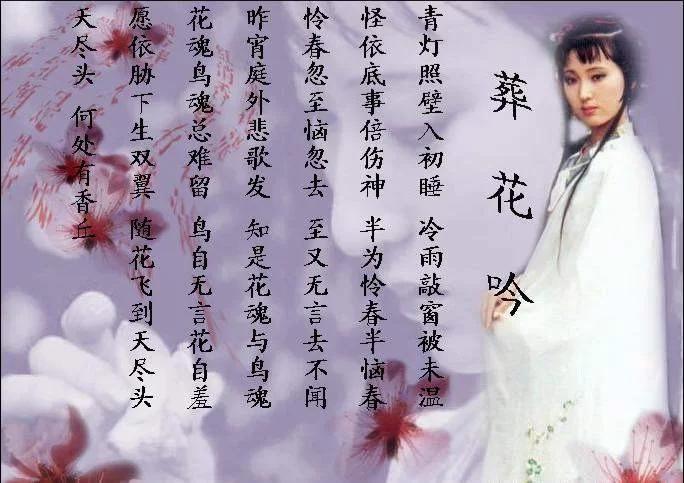 葬花吟
青灯照壁入初睡 冷雨敲窗被未温
怪依底事倍伤神 半为怜春半恼春
怜春忽至恼忽去 至又无言去不闻
昨宵庭外悲歌发 知是花魂与鸟魂
花魂鸟魂总难留 鸟自无言花自羞
愿依胁下生双翼 随花飞到天尽头
天尽头 何处有香丘